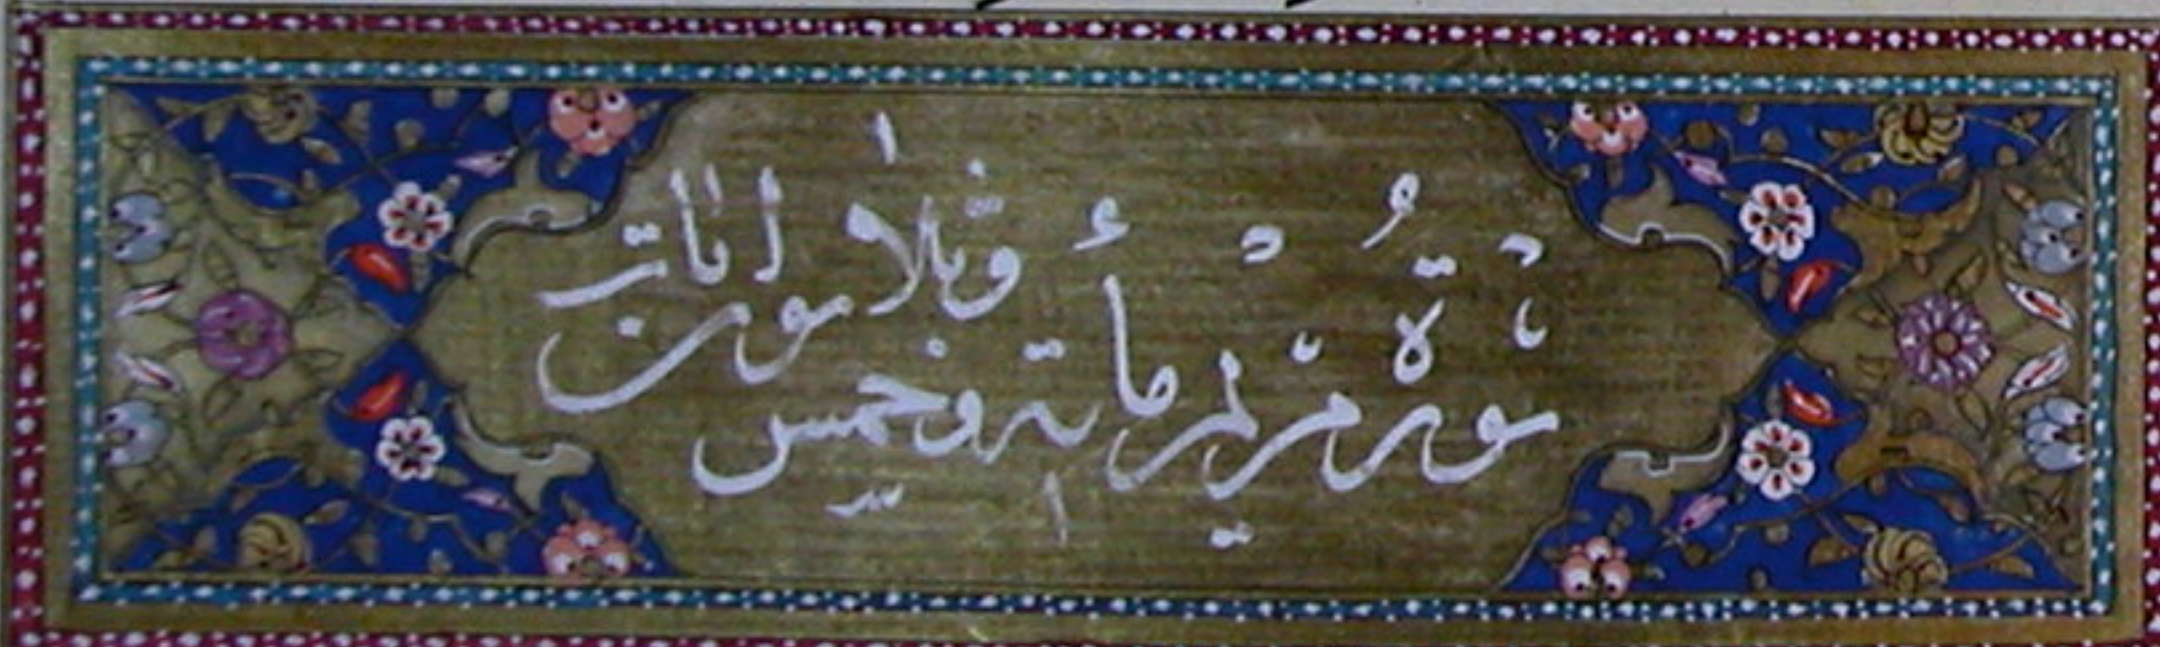 سورة مريم مأتة وخمس وثلاثون ايات